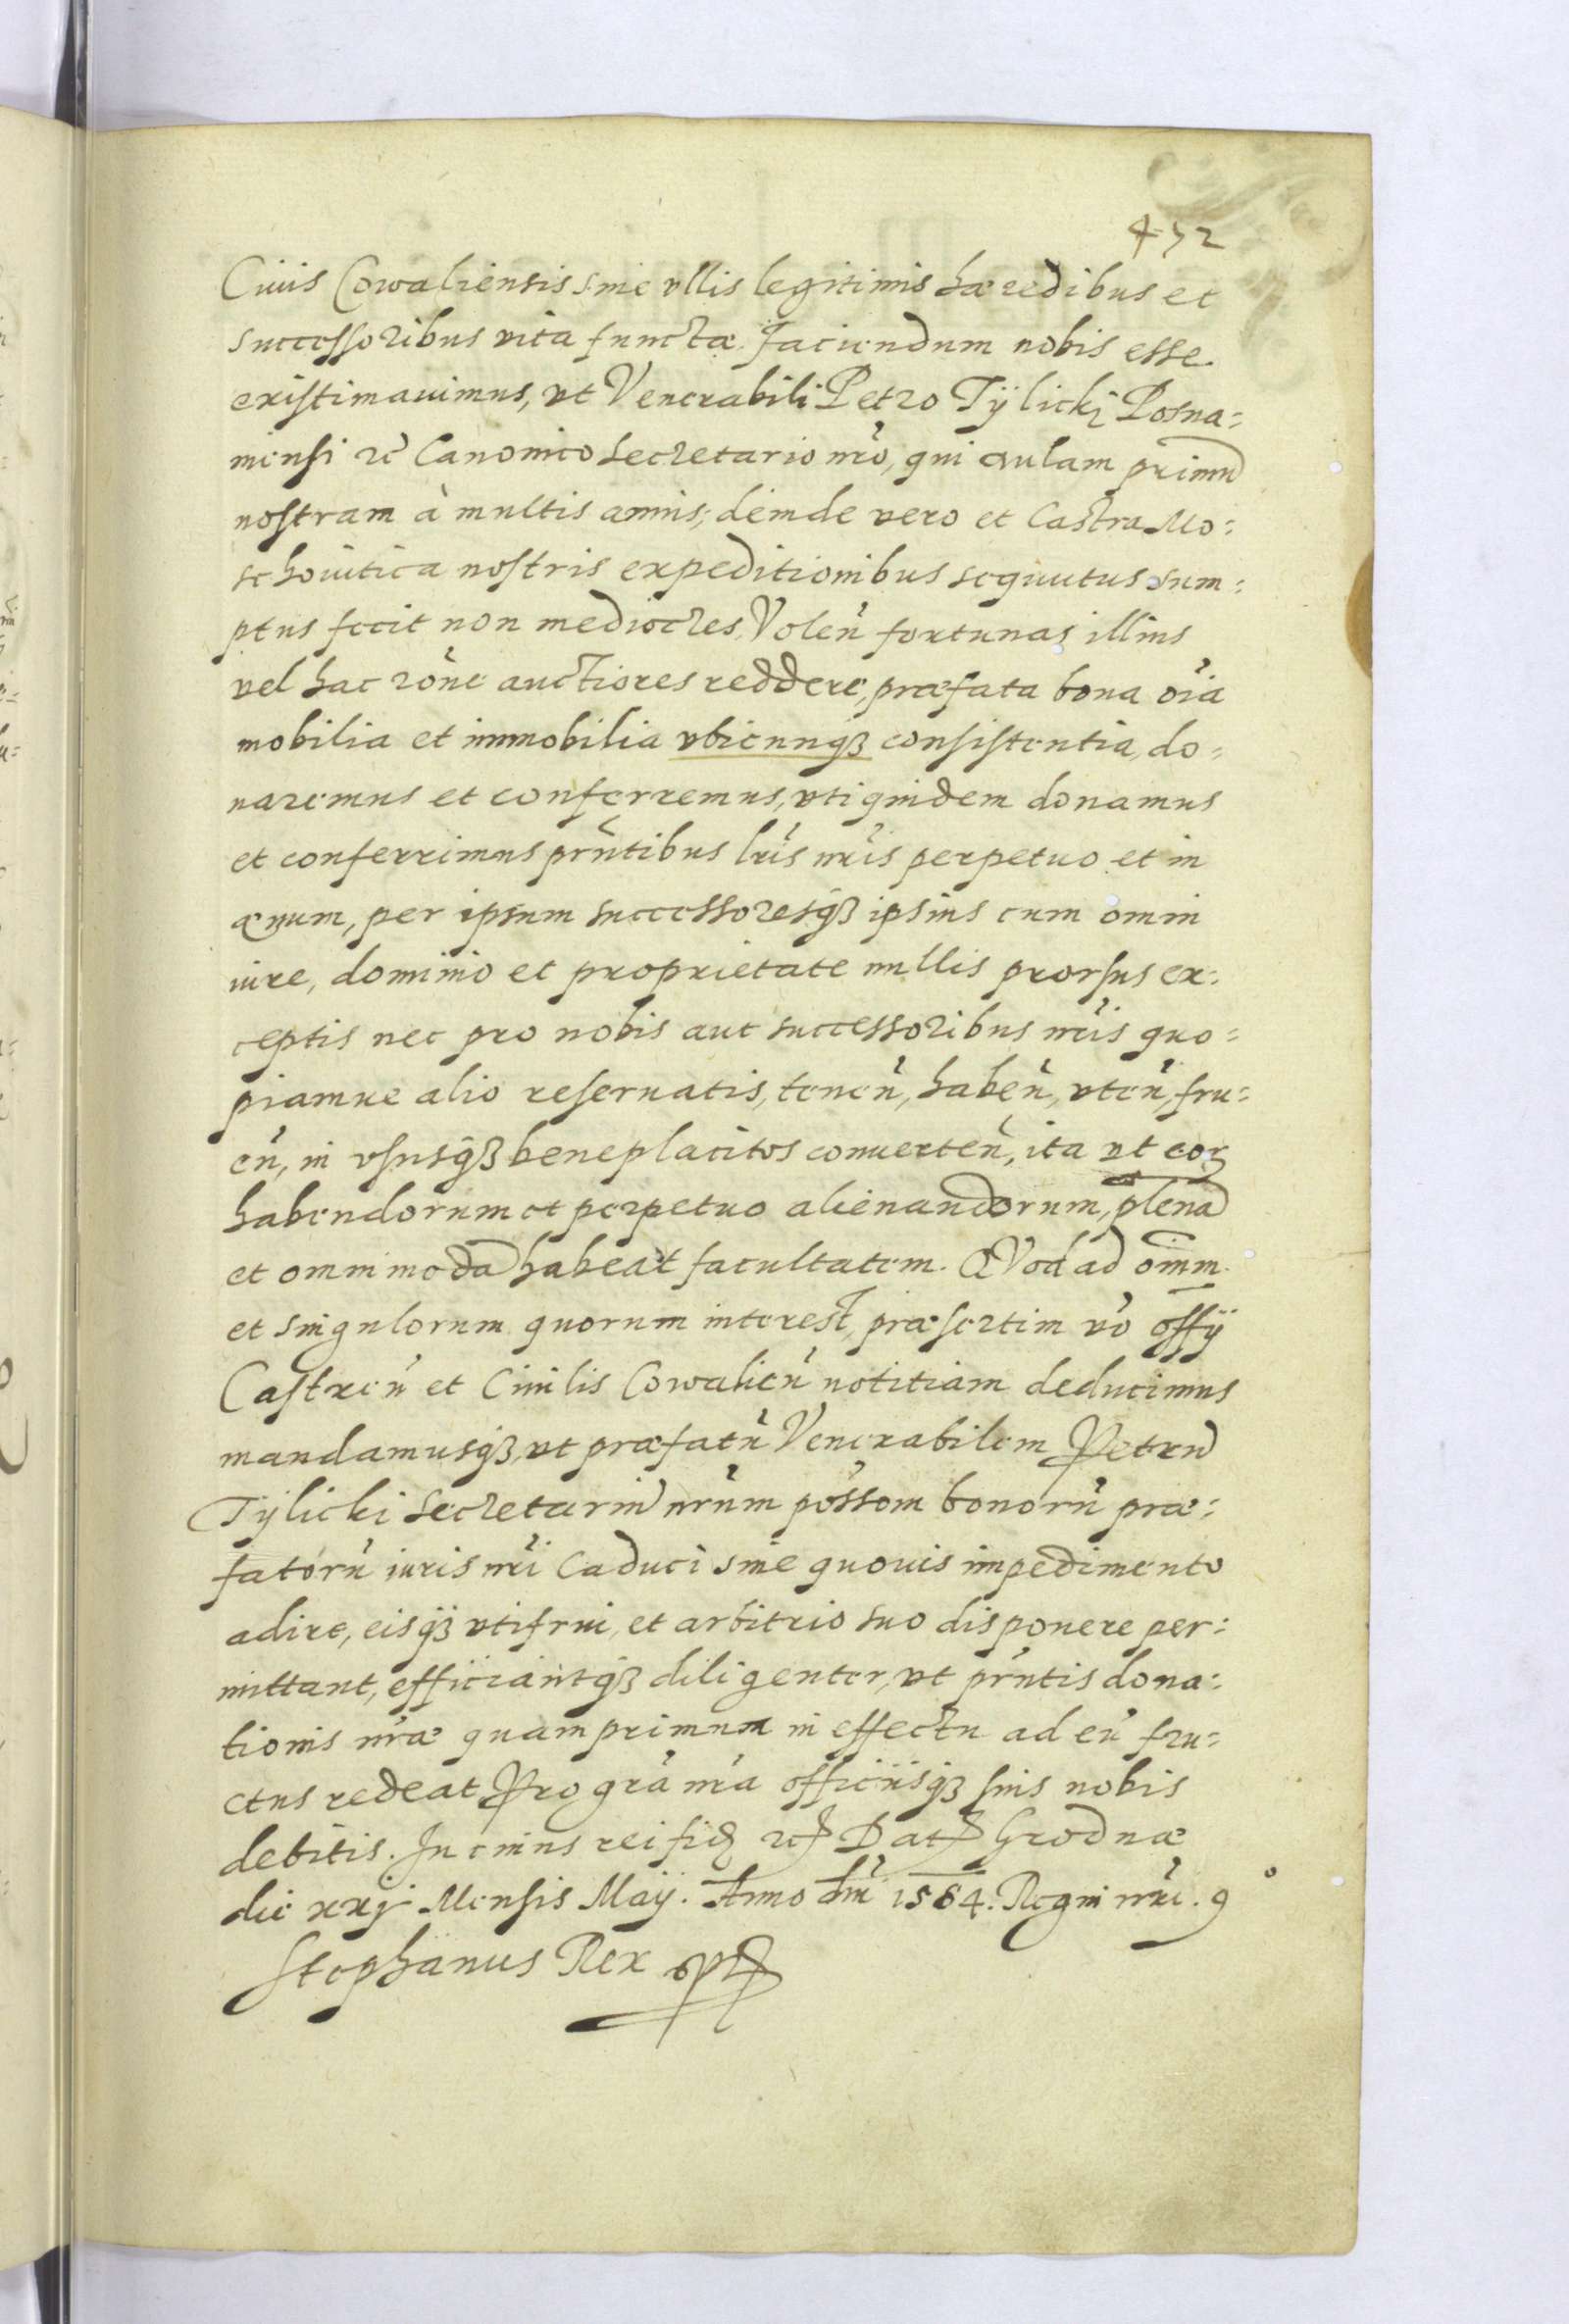 452
Ciuis Cowaliensis sine vllis legitimis hæredibus et
successoribus vita functæ. Faciendum nobis esse
existimauimus, vt Venerabili Petro Tÿlicki Posna=
niensi zc̃ Canonico Secretario nr̃o, qui aulam primũ
nostram à multis annis, deinde vero et Castra Mo=
schouitica nostris expeditionibus sequutus sum=
ptus fecit non mediocres, Voleñ fortunas illius
vel hac rõne auctiores reddere, præfata bona oĩa
mobilia et immobilia vbicunqꝫ consistentia, do=
naremus et conferremus, vti quidem donamus
et conferrimus pr̃ntibus lr̃is nr̃is perpetuo et in
æuum, per ipsum successoresqꝫ ipsius cum omni
iure, dominio et proprietate nullis prorsus ex=
ceptis nec pro nobis aut successoribus nr̃is quo=
piamue alio reseruatis, teneñ, habeñ, vteñ, fru=
eñ, in vsusqꝫ beneplacitos conuerteñ, ita vt eoꝝ
habendorum et perpetuo alienandorum, plenã
et omnimodã habeat facultatem. QVod ad om̃m
et singulorum quorum interest, præsertim vo᷃ offÿ
Castreñ et Ciuilis Cowalieñ notitiam deducimus
mandamusqꝫ, vt præfatũ Venerabilem Petrũ
Tÿlicki Secretariũ nr̃um possom bonorũ præ=
fatorũ iuris nr̃i Caduci sine quouis impedimento
adire, eisqꝫ vtifrui, et arbitrio suo disponere per=
mittant, efficiantqꝫ diligenter, vt pr̃ntis dona=
tionis nr̃æ quamprimum in effectu ad eũ fru=
ctus redeat Pro gr̃a nr̃a officiisqꝫ suis nobis
debitis. In cuius rei fidẽ zc̃ Dat̃ Grodnæ
die xxj Mensis Maÿ. Anno Dñi 1584. Regni nr̃i. 9°
Stephanus Rex